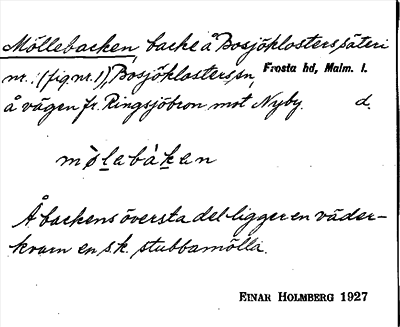 Möllebacken, backe å Bosjöklosters säteri
nr. 1 (fig nr. 1), Bosjöklosters sn, Frosta hd, Malm. l.
å vägen fr. Ringsjöbron mot Nyby. d.
mølabàkan
Å backens översta del ligger en väder-
kvarn en s.k. stubbamölla.
EINAR HOLMBERG 1927